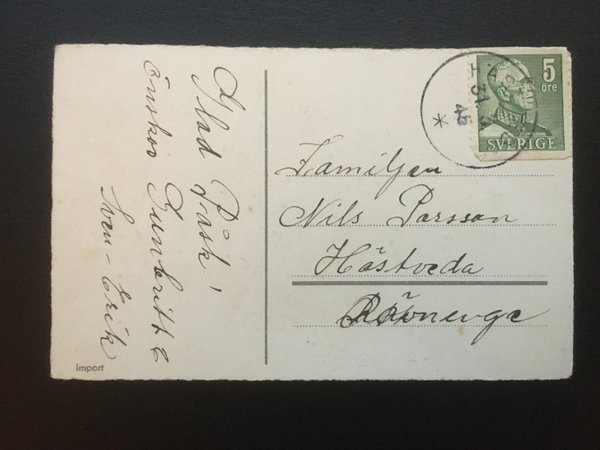 Glad Påsk!
önskar Gunbritt &
Sven-Erik
Import
Familjen
Nils Parsson
Hästveda
5
öre
SVERIGE
31
45